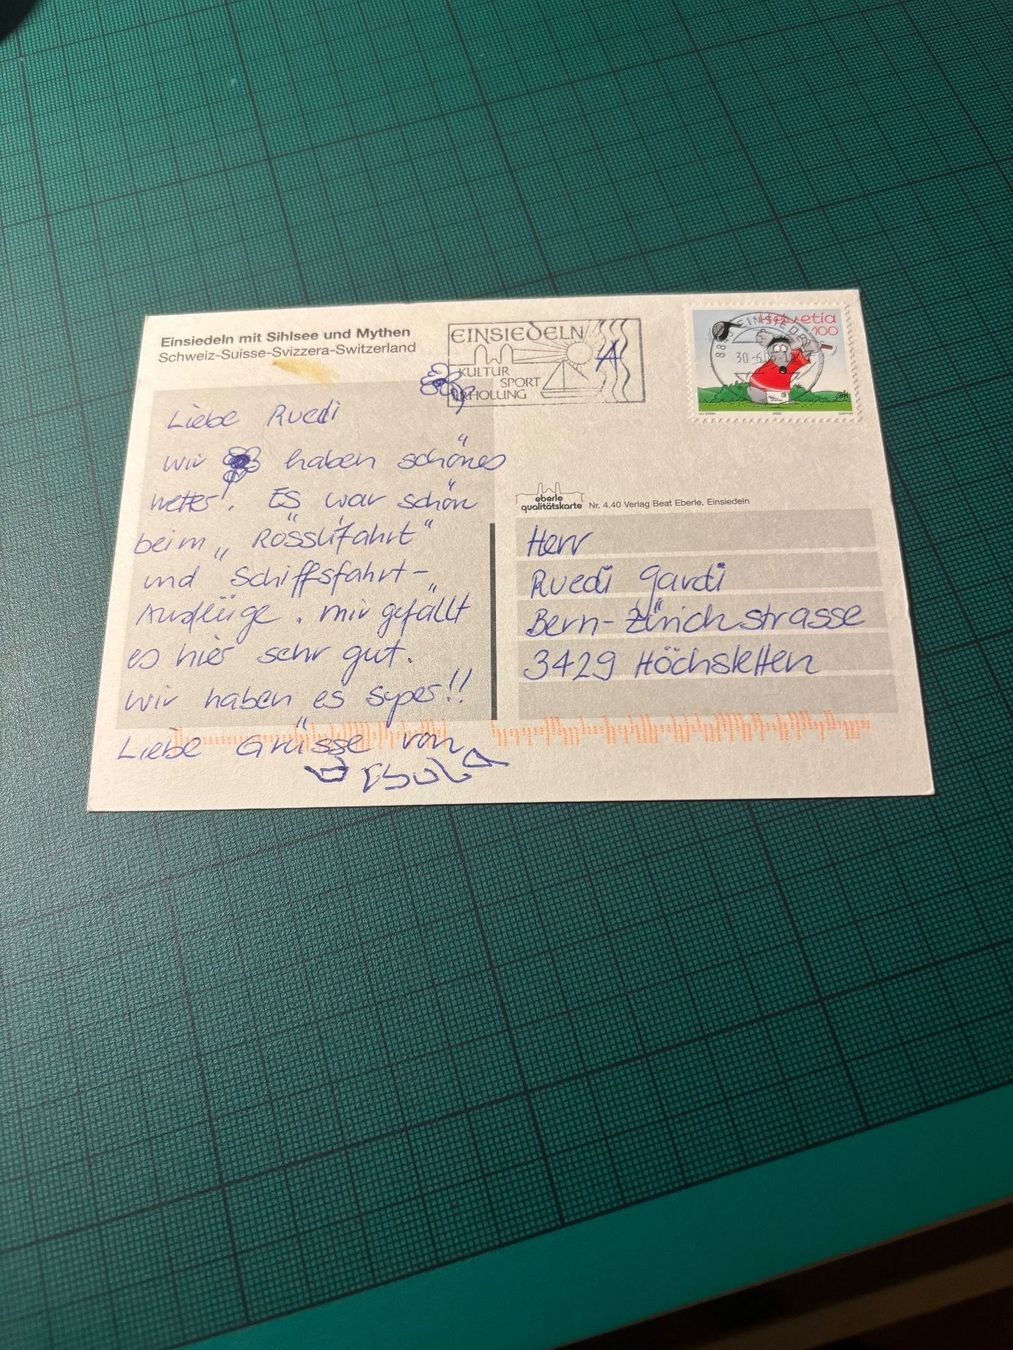 Einsiedeln mit Sihlsee und Mythen
Schweiz-Suisse-Svizzera-Switzerland
EINSIEDELN
KULTUR
SPORT
ERHOLUNG
A
Helvetia
100
EINSIEDELN
30.-6.
Liebe Ruedi
wir haben schönes
wetter! Es war schön
beim „Rösslifahrt"
und Schiffsfahrt-
Ausflüge. mir gefällt
es hier sehr gut.
wir haben es super!!
Liebe Grüsse von
eberle
qualitätskarte Nr. 4.40 Verlag Beat Eberle, Einsiedeln
Herr
Ruedi Gardi
Bern-Zürichstrasse
3429 Höchstetten